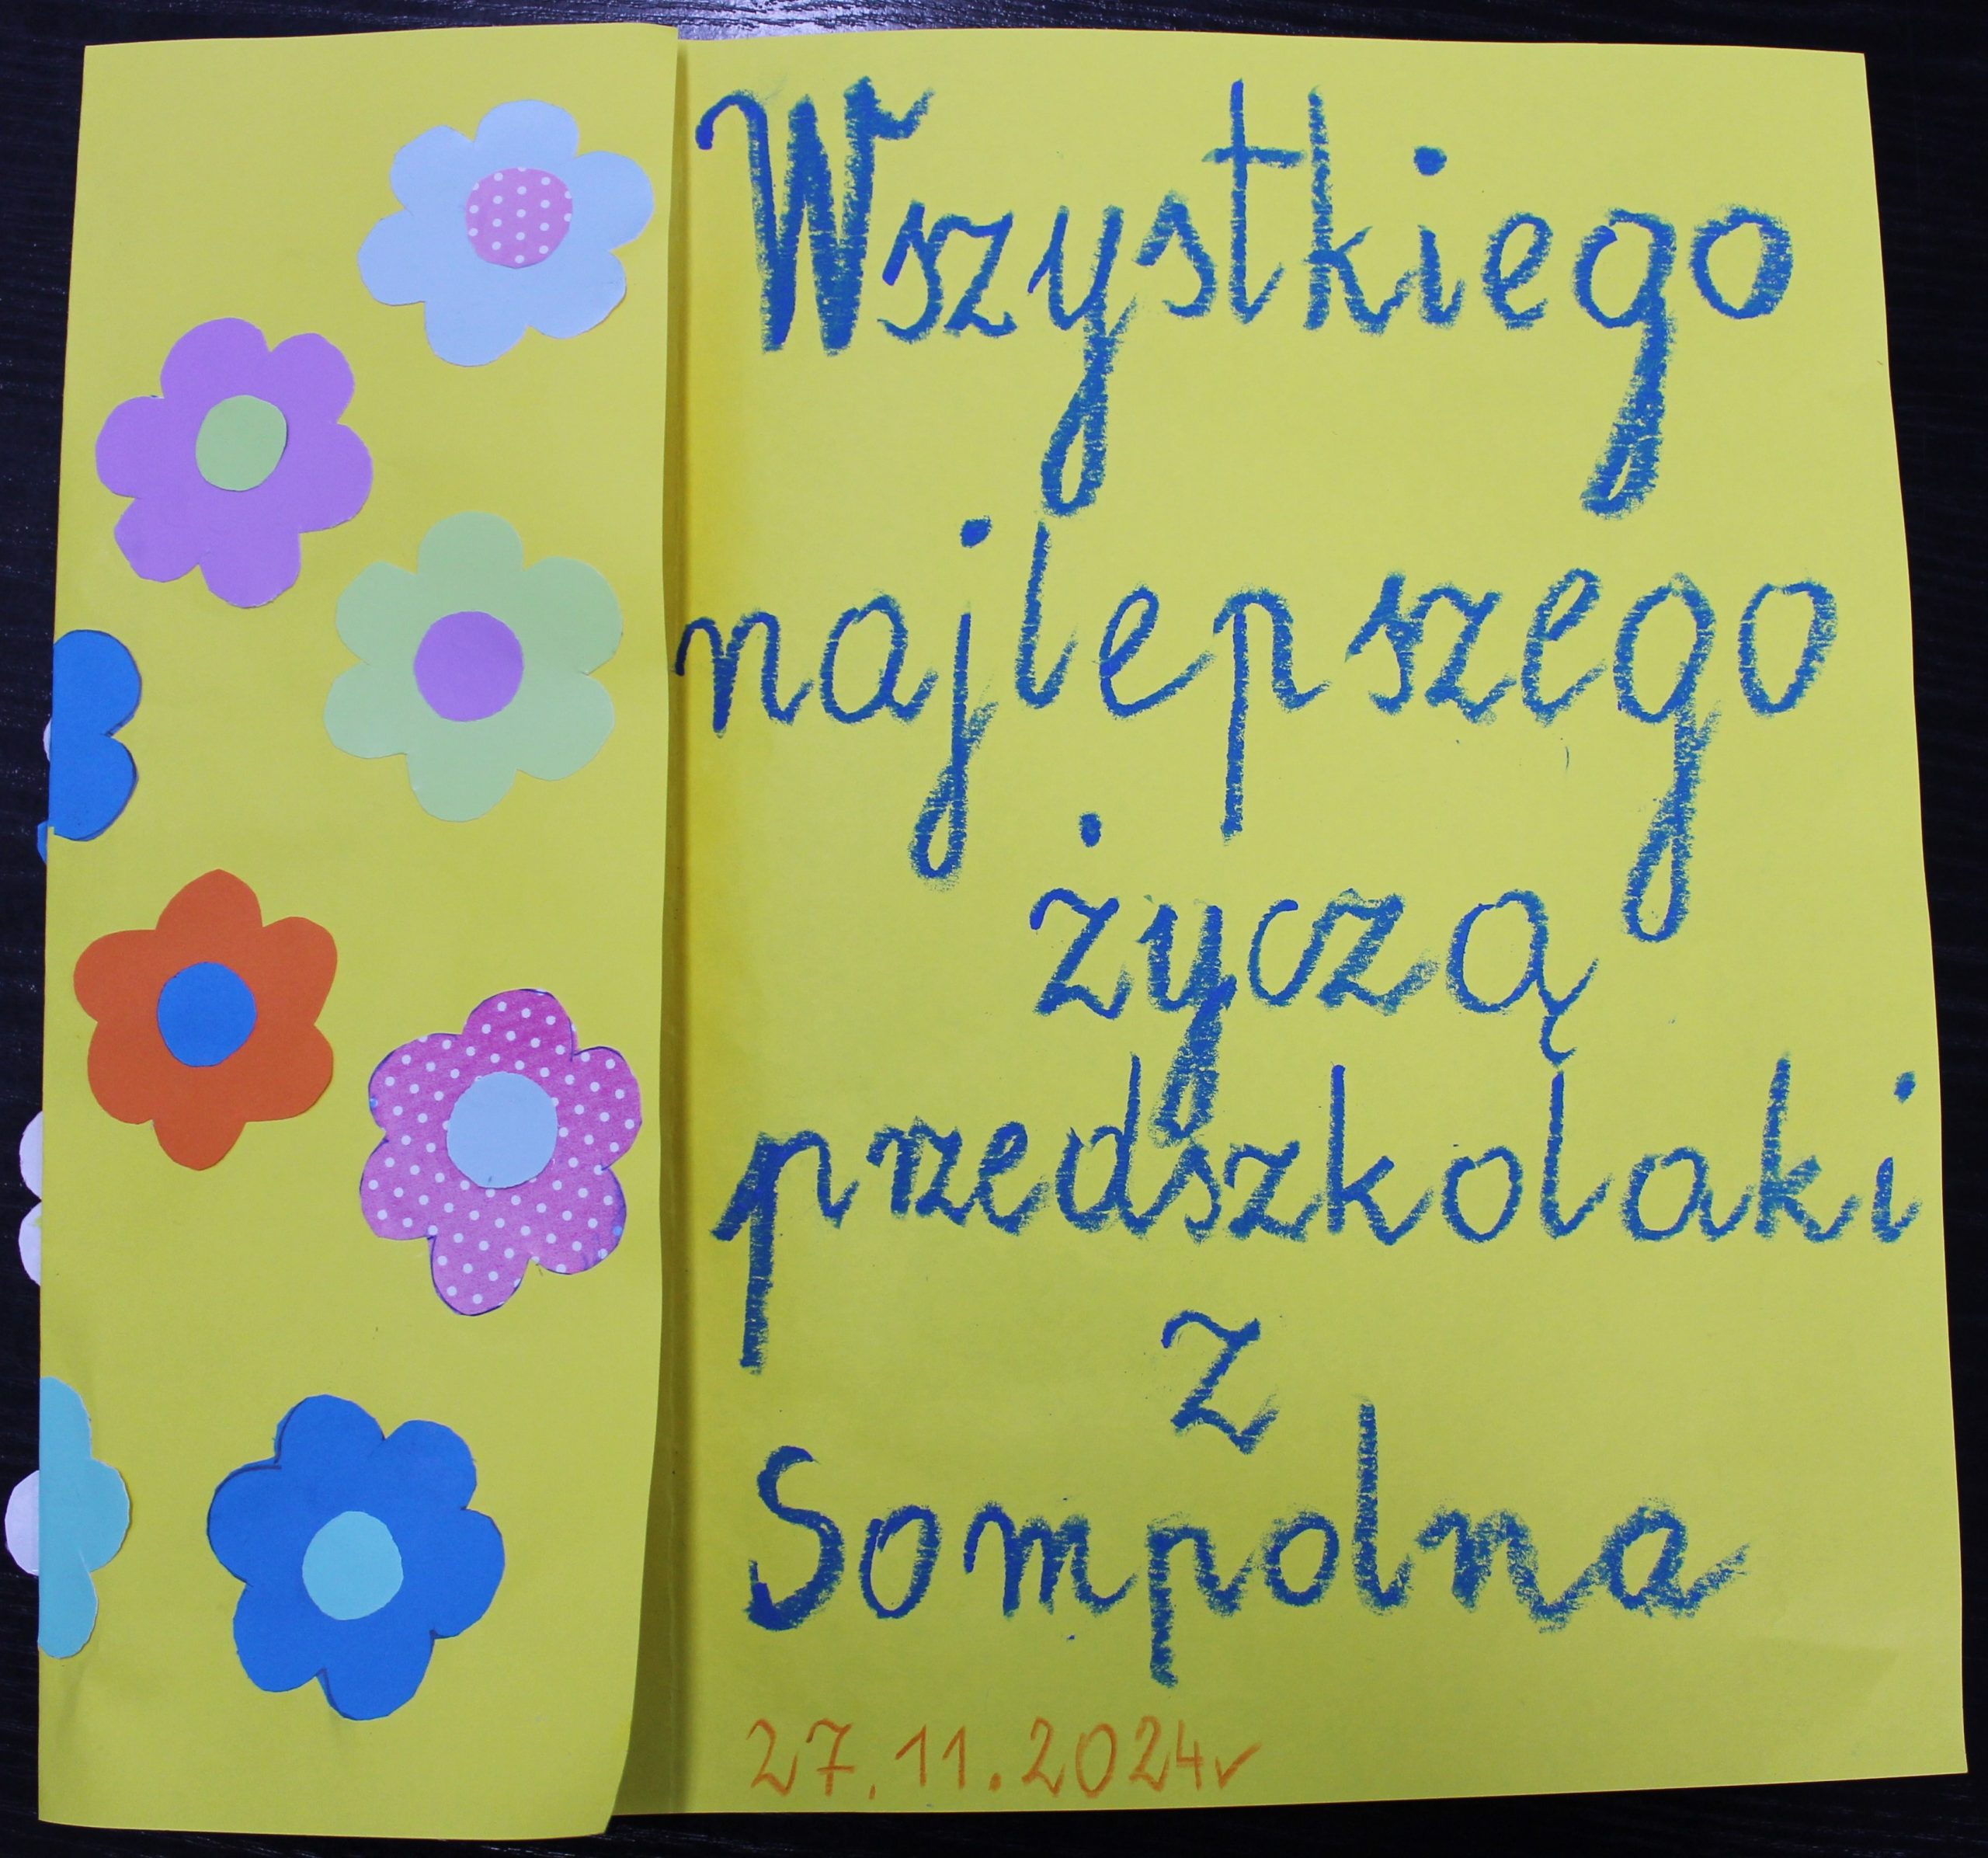 Wszystkiego
najlepszego
życzą
przedszkolaki
z
Sompolna
27.11.2024r